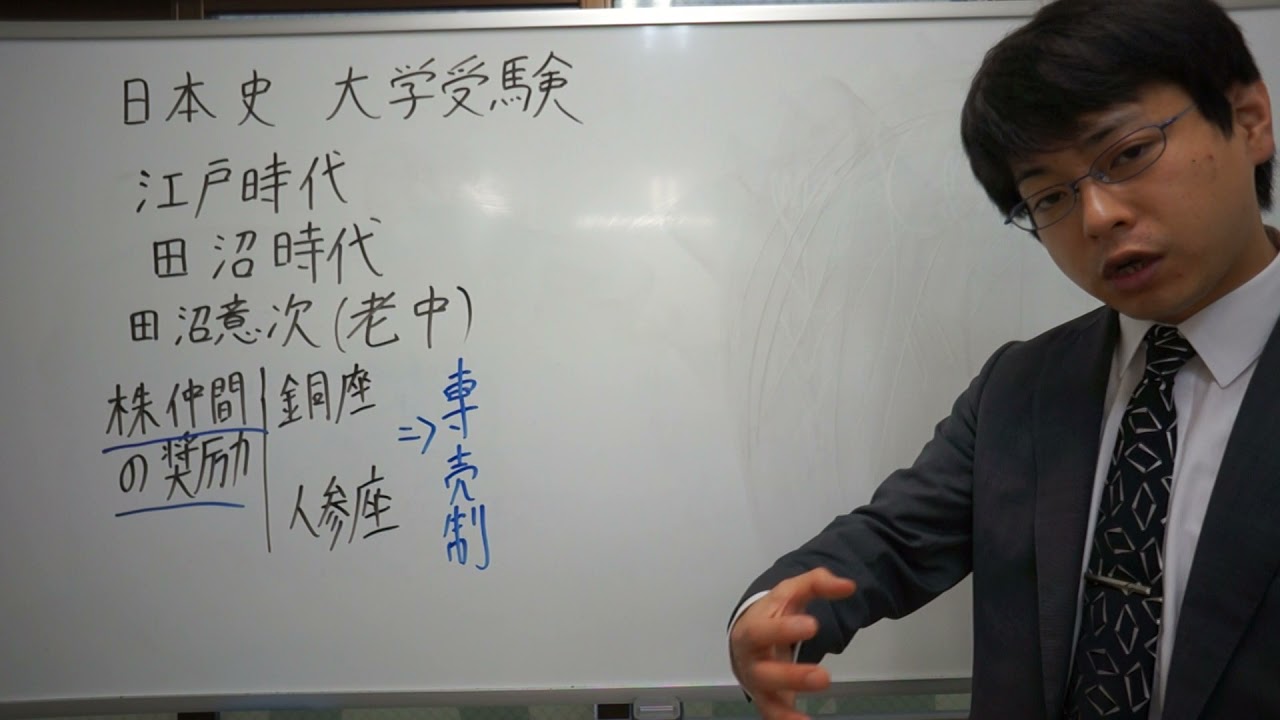 日本史 大学受験
江戸時代
田沼時代
田沼意次(老中)
株仲間
の奨励
銅座
人参座
⇒専売制